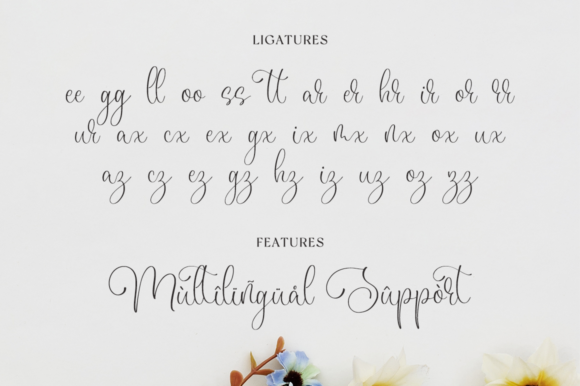 LIGATURES
ee gg ll oo ss tt ar er hr ir or rr
ur ax cx ex gx ix mx nx ox ux
az cz ez gz hz iz uz oz zz
FEATURES
Mùltîlïñgūål Sûppòrt